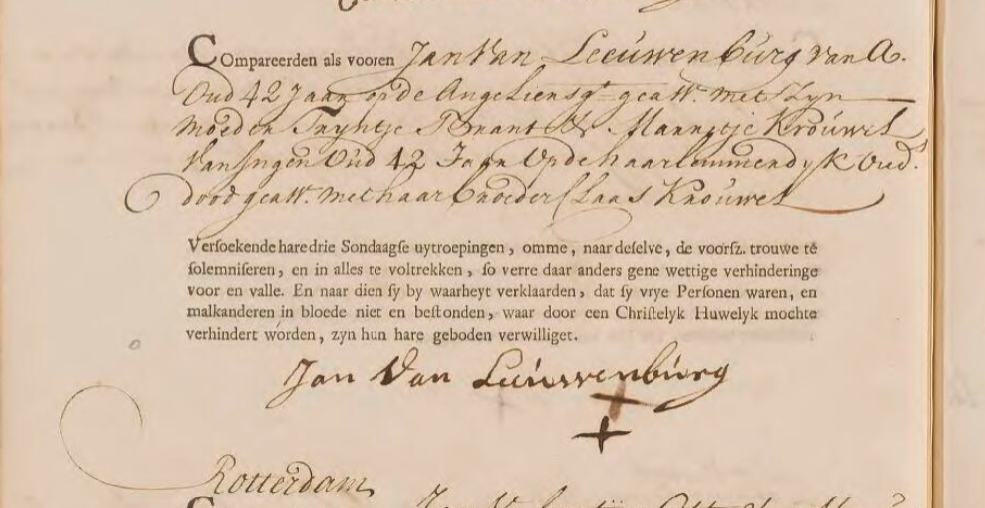 Compareerden als vooren Jan Van Leeuwenburg van A.
Oud 42 Jaar op de Angeliersgt. geatt. met Zyn
moeder Tryntje & Mannetje Krouwel
Van Ingen Oud 42 Jaar Op de haarlemmerdyk Oud.s
dood geatt. met haar broeder Claas Krouwel
Versoekende hare drie Sondaagse uytroepingen, omme, naar deselve, de voorsz. trouwe te
solemniseren, en in alles te voltrekken, so verre daar anders gene wettige verhinderinge
voor en valle. En naar dien sy by waarheyt verklaarden, dat sy vrye Personen waren, en
malkanderen in bloede niet en bestonden, waar door een Christelyk Huwelyk mochte
verhindert worden, zyn hun hare geboden verwilliget.
Jan Van Leeuwenburg
Rotterdam
Jan